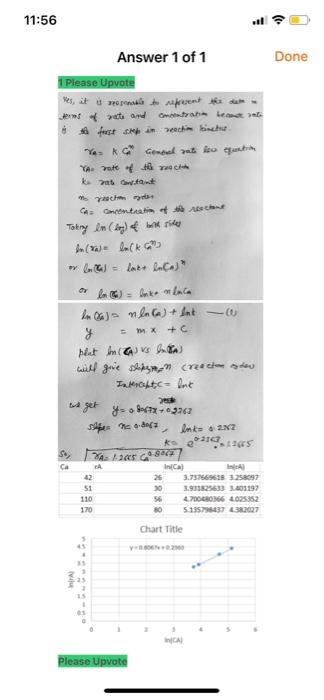 11:56
Answer 1 of 1
Done
1 Please Upvote
Yes, it is reasonable to represent the data in
terms of rate and concentration because rate
is the first step in reaction kinetics.
rA = K CAⁿ General rate law equation
rA = rate of the reaction
k = rate constant
n = reaction order
CA = concentration of the reactant
Taking ln (log) of both sides
ln (rA) = ln(k CAⁿ)
or ln(rA) = lnk + ln(CA)ⁿ
or ln(rA) = lnk + n lnCA
ln(rA) = n ln(CA) + lnk — (1)
y = mx + C
plot ln(rA) vs ln(CA)
will give slope = n (reaction order)
Intercept, C = lnk
we get y = 0.8067x + 0.2363
slope n = 0.8067, lnk = 0.2363
K = e^0.2363 = 1.2665
So, rA = 1.2665 CA^0.8067
Ca rA ln(Ca) ln(rA)
42 26 3.737669618 3.258097
51 30 3.931825633 3.401197
110 56 4.700480366 4.025352
170 80 5.135798437 4.382027
Chart Title
y = 0.8067x + 0.2363
5
4.5
4
3.5
3
2.5
2
1.5
1
0.5
0
ln(rA)
0 1 2 3 4 5 6
ln(CA)
Please Upvote